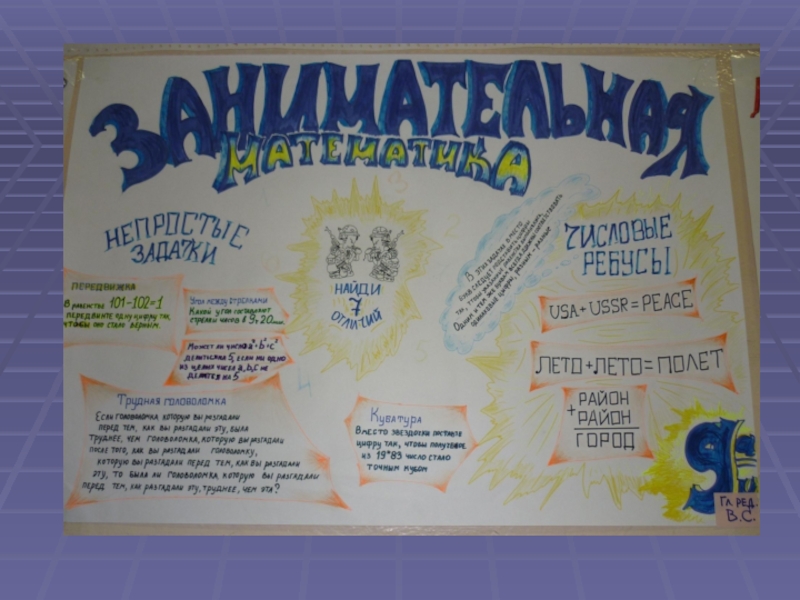 ЗАНИМАТЕЛЬНАЯ
МАТЕМАТИКА
НЕПРОСТЫЕ
ЗАДАЧКИ
ПЕРЕДВИЖКА
В равенстве 101-102=1
передвинте одну цифру так,
чтобы оно стало верным.
Угол между стрелками
Какой угол составляют
стрелки часов в 9ч 20мин.
Может ли число a³+b³+c³
делиться на 5, если ни одно
из целых чисел a, b, c не
делится на 5
Трудная головоломка
Если головоломка, которую вы разгадали
перед тем, как вы разгадали эту, была
труднее, чем головоломка, которую вы разгадали
после того, как вы разгадали головоломку,
которую вы разгадали перед тем, как вы разгадали
эту, то была ли головоломка, которую вы разгадали
перед тем, как разгадали эту, труднее, чем эта?
НАЙДИ
7
ОТЛИЧИЙ
Кубатура
Вместо звездочки поставьте
цифру так, чтобы полученное
из 19*83 число стало
точным кубом
В этих задачах вместо
букв следует подставить цифры
Одним и тем же буквам
одинаковые цифры, разным - разные
ЧИСЛОВЫЕ
РЕБУСЫ
USA+USSR=PEACE
ЛЕТО+ЛЕТО=ПОЛЕТ
РАЙОН
+
РАЙОН
ГОРОД
Гл. ред.
В.С.